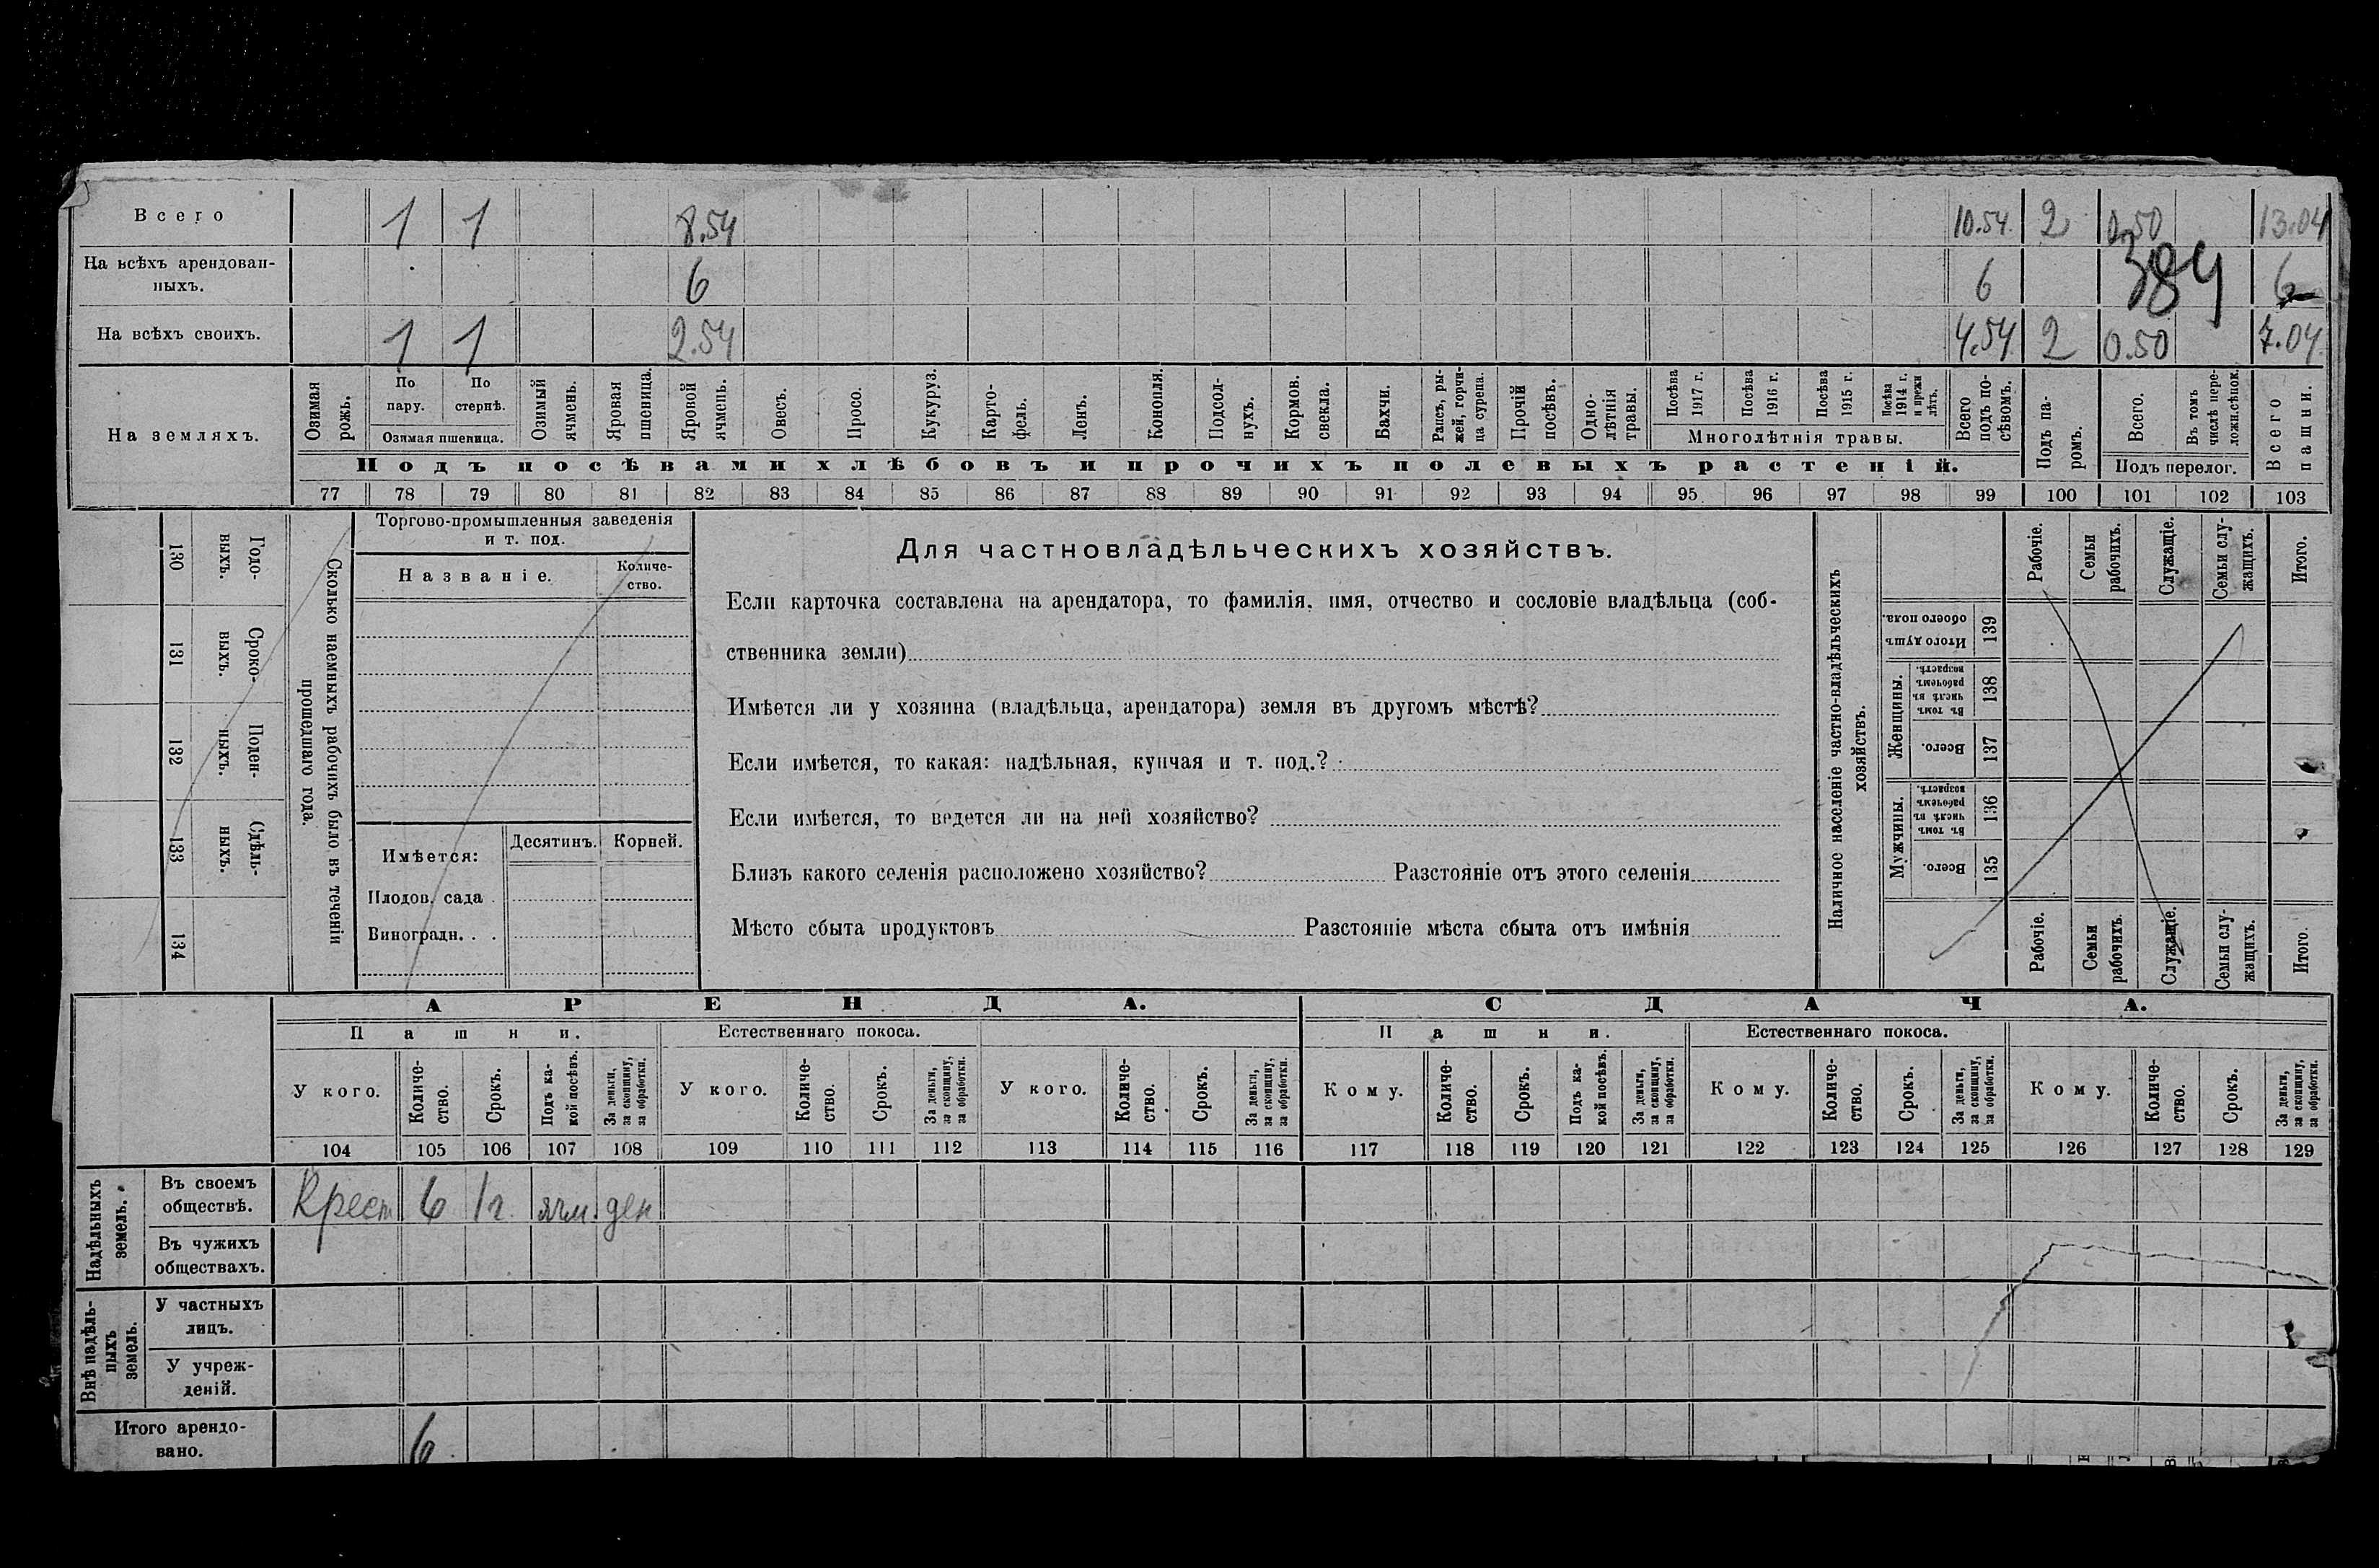 Всего 1 1 8.54 10.54 2 0.50 13.04
На всѣхъ арендован-
ныхъ. 6 6 384 6
На всѣхъ своихъ. 1 1 2.54 4.54 2 0.50 7.04
На земляхъ.
Озимая рожь.
По пару.
По стернѣ.
Озимая пшеница.
Озимый ячмень.
Яровая пшеница.
Яровой ячмень.
Овесъ.
Просо.
Кукуруз.
Карто-
фель.
Ленъ.
Конопля.
Подсол-
нухъ.
Кормов.
свекла.
Бахчи.
Рапсъ, ры-
жей, горчи-
ца сурепа.
Прочій
посѣвъ.
Одно-
лѣтнія
травы.
Посѣва
1917 г.
Посѣва
1916 г.
Посѣва
1915 г.
Посѣва
1914 г.
и прежн
лѣтъ.
Многолѣтнія травы.
Всего
подъ по-
сѣвомъ.
Подъ па-
ромъ.
Всего.
Въ томъ
числѣ пере-
ложн.сѣнок.
Подъ перелог.
Всего
пашни.
Подъ посѣвами хлѣбовъ и прочихъ полевыхъ растеній.
77 78 79 80 81 82 83 84 85 86 87 88 89 90 91 92 93 94 95 96 97 98 99 100 101 102 103
130 Годо-
выхъ.
131 Сроко-
выхъ.
132 Поден-
ныхъ.
133 Сдѣль-
ныхъ.
134
Сколько наемныхъ рабочихъ было въ теченіи
прошедшаго года.
Торгово-промышленныя заведенія
и т. под.
Названіе.
Количе-
ство.
Имѣется:
Десятинъ. Корней.
Плодов. сада .
Виноградн. . .
Для частновладѣльческихъ хозяйствъ.
Если карточка составлена на арендатора, то фамилія, имя, отчество и сословіе владѣльца (соб-
ственника земли)
Имѣется ли у хозяина (владѣльца, арендатора) земля въ другомъ мѣстѣ?
Если имѣется, то какая: надѣльная, купчая и т. под.?
Если имѣется, то ведется ли на ней хозяйство?
Близъ какого селенія расположено хозяйство? Разстояніе отъ этого селенія
Мѣсто сбыта продуктовъ Разстояніе мѣста сбыта отъ имѣнія
Наличное населеніе частно-владѣльческихъ
хозяйствъ.
Рабочіе.
Семьи
рабочихъ.
Служащіе.
Семьи слу-
жащихъ.
Итого.
Итого душъ
обоего пола.
139
Женщины.
Въ томъ
числѣ въ
рабочемъ
возрастѣ.
138
Всего.
137
Мужчины.
Въ томъ
числѣ въ
рабочемъ
возрастѣ.
136
Всего.
135
Рабочіе.
Семьи
рабочихъ.
Служащіе.
Семьи слу-
жащихъ.
Итого.
АРЕНДА. СДАЧА.
Пашни. Естественнаго покоса. Пашни. Естественнаго покоса.
У кого.
Количе-
ство.
Срокъ.
Подъ ка-
кой посѣвъ.
За деньги,
за скопщину,
за обработки.
У кого.
Количе-
ство.
Срокъ.
За деньги,
за скопщину,
за обработки.
У кого.
Количе-
ство.
Срокъ.
За деньги,
за скопщину,
за обработки.
Кому.
Количе-
ство.
Срокъ.
Подъ ка-
кой посѣвъ.
За деньги,
за скопщину,
за обработки.
Кому.
Количе-
ство.
Срокъ.
За деньги,
за скопщину,
за обработки.
Кому.
Количе-
ство.
Срокъ.
За деньги,
за скопщину,
за обработки.
104 105 106 107 108 109 110 111 112 113 114 115 116 117 118 119 120 121 122 123 124 125 126 127 128 129
Надѣльныхъ
земель.
Въ своемъ
обществѣ.
Крест 6 1г. ячм. ден
Въ чужихъ
обществахъ.
Внѣ надѣль-
ныхъ
земель.
У частныхъ
лицъ.
У учреж-
деній.
Итого арендо-
вано. 6